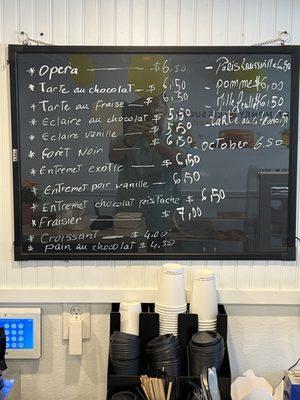 * Opera — $6.50
* Tarte au chocolat — $6.50
+ Tarte au fraise — $6.50
* Eclaire au chocolat $5.50
* Eclaire vanille — $5.50
* Foret Noir — $6.50
* Entremet exotic — $6.50
+ Entremet poir vanille — 6.50
+ Entremet chocolat pistache $6.50
* Fraisier $7.00
* Croissant — $4.00
* Pain au chocolat — $4.50
- Paris 6.50
- pomme $6.00
- Mille feuille $6.50
- Tarte 6.50
- October 6.50